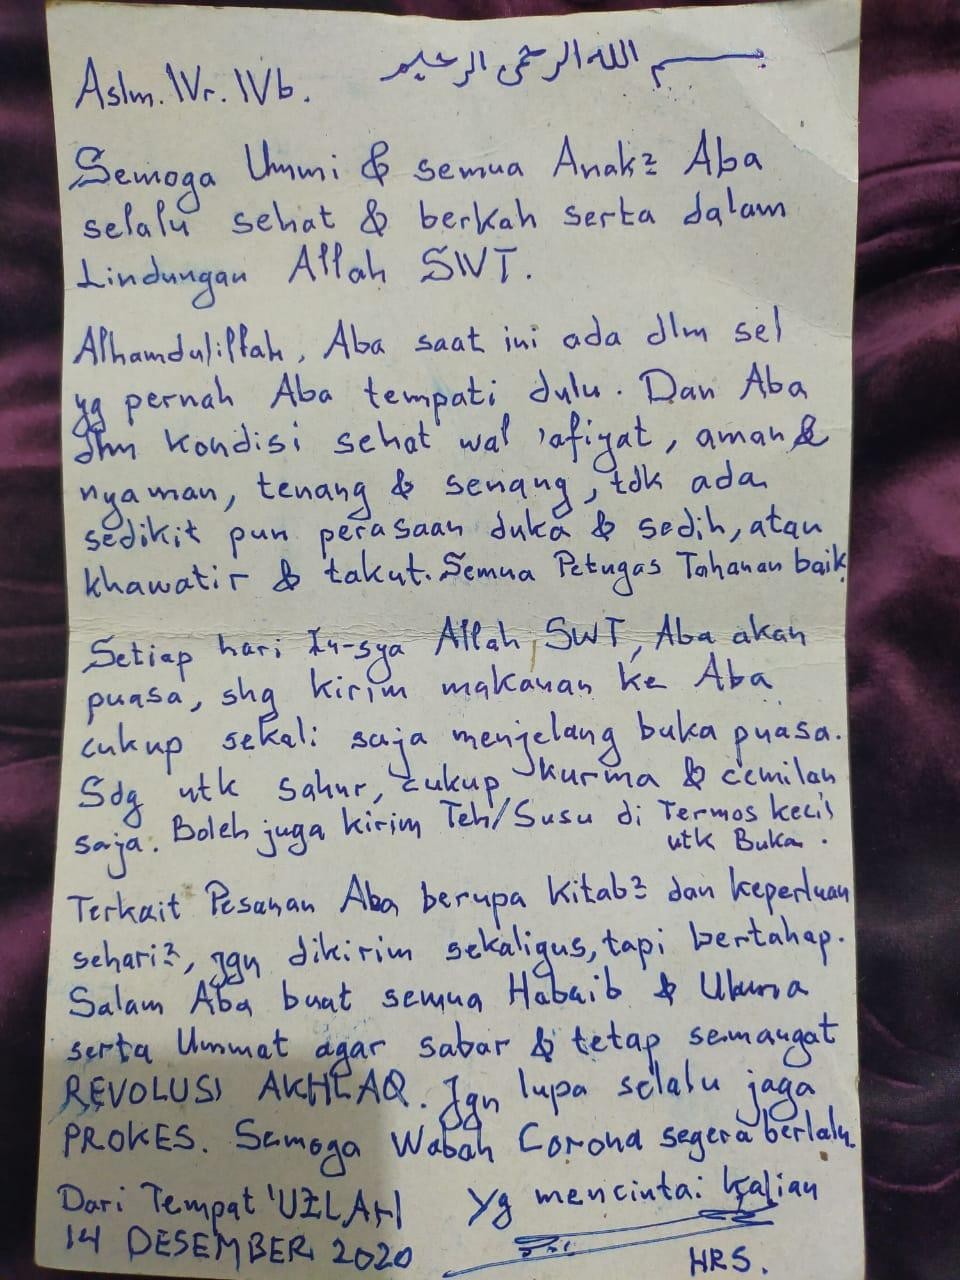 بسم الله الرحمن الرحيم
Aslm. Wr. Wb.
Semoga Ummi & semua Anak2 Aba
selalu sehat & berkah serta dalam
Lindungan Allah SWT.
Alhamdulillah, Aba saat ini ada dlm sel
yg pernah Aba tempati dulu. Dan Aba
dlm kondisi sehat wal 'afiyat, aman &
nyaman, tenang & senang, tdk ada
sedikit pun perasaan duka & sedih, atau
khawatir & takut. Semua Petugas Tahanan baik.
Setiap hari In-sya Allah SWT, Aba akan
puasa, shg kirim makanan ke Aba
cukup sekali saja menjelang buka puasa.
Sdg utk sahur, cukup kurma & cemilan
saja. Boleh juga kirim Teh/Susu di Termos kecil
utk Buka.
Terkait Pesanan Aba berupa kitab2 dan keperluan
sehari2, jgn dikirim sekaligus, tapi bertahap.
Salam Aba buat semua Habaib & Ulama
serta Ummat agar sabar & tetap semangat
REVOLUSI AKHLAQ. Jgn lupa selalu jaga
PROKES. Semoga Wabah Corona segera berlalu.
Dari Tempat 'UZLAH
14 DESEMBER 2020
Yg mencintai kalian
HRS.